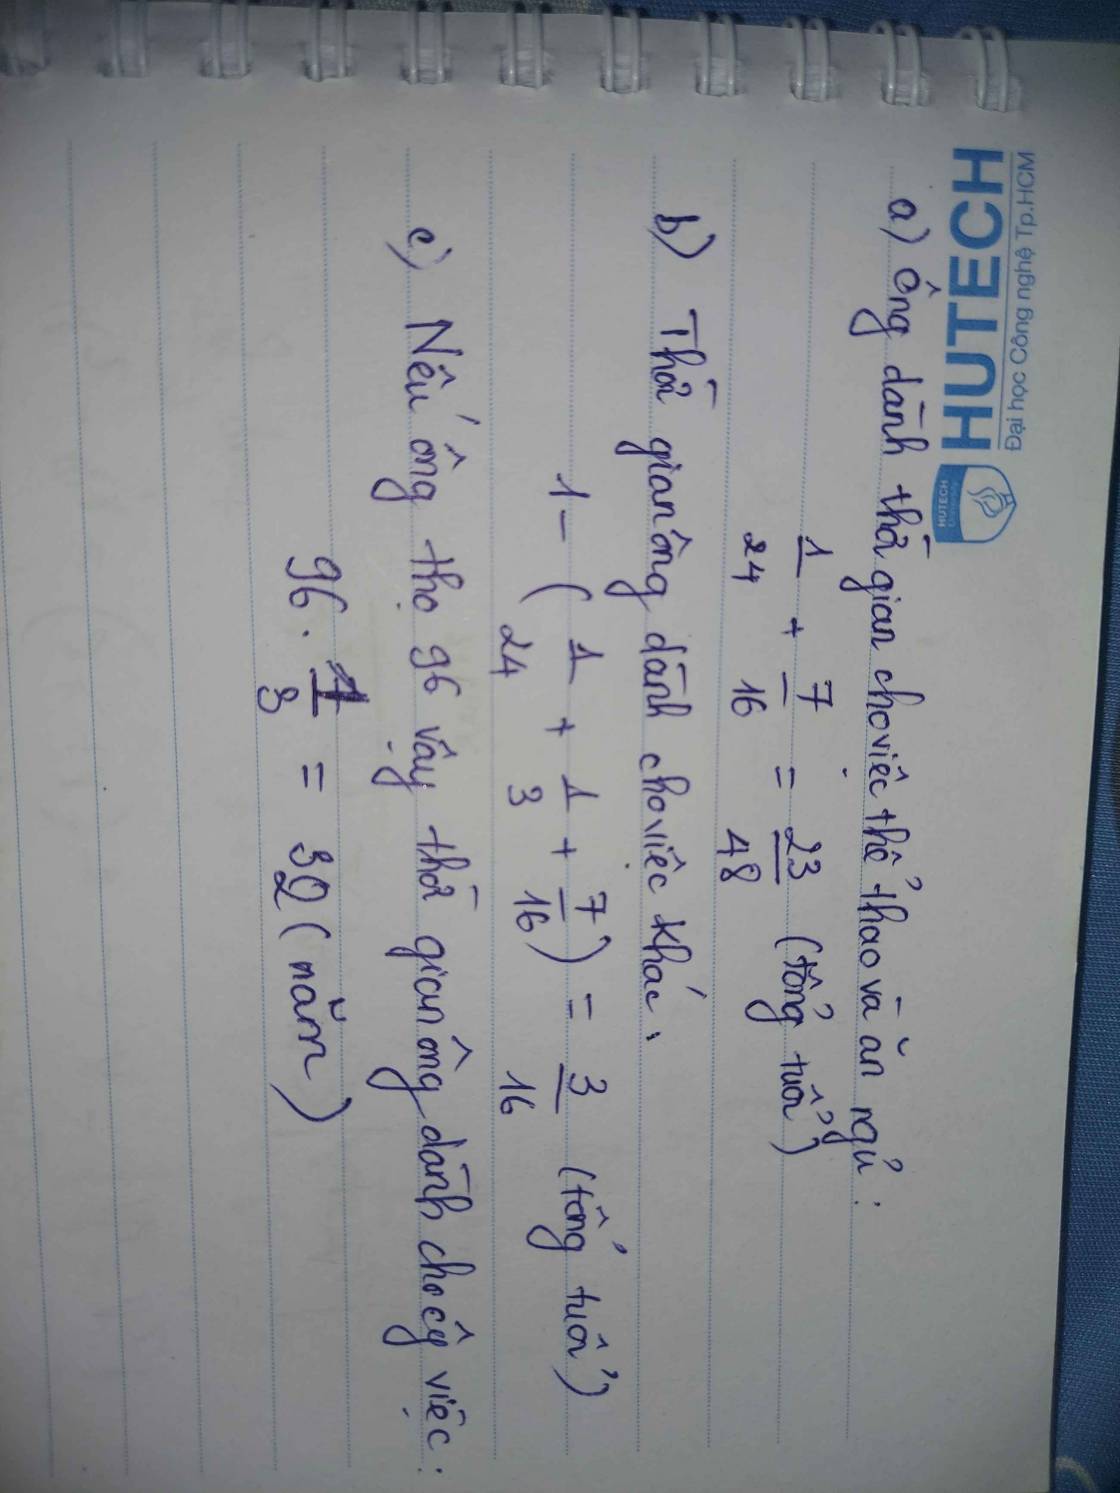 HUTECH
Đại học Công nghệ Tp.HCM
HUTECH
a) ông dành thời gian cho việc thể thao và ăn ngủ:
1/24 + 7/16 = 23/48 (tổng tuổi)
b) Thời gian ông dành cho việc khác:
1 - (1/24 + 1/3 + 7/16) = 3/16 (tổng tuổi)
c) Nếu ông thọ 96 vậy thời gian ông dành cho cg việc:
96 . 1/3 = 32 (năm)